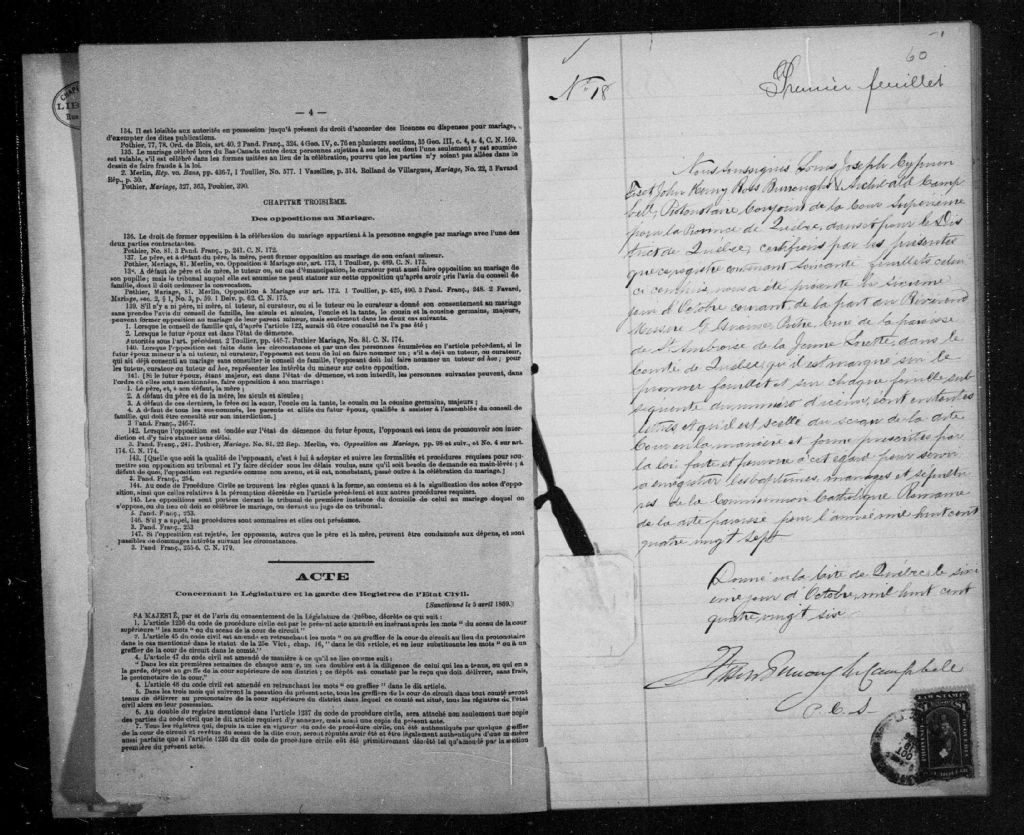 — 4 —
134. Il est loisible aux autorités en possession jusqu'à présent du droit d'accorder des licences ou dispenses pour mariage,
d'exempter des dites publications.
Pothier, 77, 78. Ord. de Blois, art. 40, 2 Pand. Franç., 324, 4 Geo. IV, c. 76 en plusieurs sections, 35 Geo. III, c. 4, s. 4, C. N. 169.
135. Le mariage célébré hors du Bas-Canada entre deux personnes sujettes à ses lois, ou dont l'une seulement y est soumise
est valable, s'il est célébré dans les formes usitées au lieu de la célébration, pourvu que les parties n'y soient pas allées dans le
dessein de faire fraude à la loi.
2. Merlin, Rép. vo. Bans, pp. 436-7, 1 Toullier, No. 577. 1 Vazeilles, p. 314. Rolland de Villargues, Mariage, No. 22, 3 Favard
Rép., p. 30.
Pothier, Mariage, 327, 363,
CHAPITRE TROISIÈME.
Des oppositions au Mariage.
136. Le droit de former opposition à la célébration du mariage appartient à la personne engagée par mariage avec l'une des
deux parties contractantes.
Pothier, No. 81. 3 Pand. Franç., p. 241. C. N. 172.
137. Le père, et à défaut du père, la mère, peut former opposition au mariage de son enfant mineur.
Pothier, Mariage, 81. Merlin, vo. Opposition à Mariage sur art. 173, 1 Toullier, p. 489. C. N. 173.
138. A défaut de père et de mère, le tuteur ou, au cas d'émancipation, le curateur peut aussi faire opposition au mariage de
son pupille; mais le tribunal auquel elle est soumise ne peut statuer sur cette opposition qu'après avoir pris l'avis du conseil de
famille, dont il doit ordonner la convocation.
Pothier, Mariage, 81. Merlin, Opposition au Mariage sur art. 172. 1 Toullier, p. 425, 490. 3 Pand. Franç., 248. 2 Favard,
Mariage, sec. 2, § 1, No. 3, p. 59. 1 Delv. p. 62. C. N. 175.
139. S'il n'y a ni père, ni mère, ni tuteur, ni curateur, ou si le tuteur ou le curateur a donné son consentement au mariage
sans prendre l'avis du conseil de famille, les aïeuls et aïeules, l'oncle et la tante, le cousin et la cousine germains, majeurs,
peuvent former opposition au mariage de leur parent mineur, mais seulement dans les deux cas suivants.
1. Lorsque le conseil de famille qui, d'après l'article 122, aurait dû être consulté ne l'a pas été;
2. Lorsque le futur époux est dans l'état de démence.
Autorités sous l'art. précédent 2 Toullier, pp. 446-7. Pothier Mariage, No. 81. C. N. 174.
140. Lorsque l'opposition est faite dans les circonstances et par une des personnes énumérées en l'article précédent, si le
futur époux mineur n'a ni tuteur, ni curateur, l'opposant est tenu de lui en faire nommer un; s'il a déjà un tuteur, ou curateur,
qui ait déjà consenti au mariage sans consulter le conseil de famille, l'opposant doit lui faire nommer un tuteur ad hoc; pour
les tuteur, curateur ou tuteur ad hoc, représenter les intérêts du mineur sur cette opposition.
141. [Si le futur époux, étant majeur, est dans l'état de démence, et non interdit, les personnes suivantes peuvent, dans
l'ordre où elles sont mentionnées, faire opposition à son mariage:
1. Le père, et, à son défaut, la mère;
2. A défaut du père et de la mère, les aïeuls et aïeules;
3. A défaut de ces derniers, le frère ou la sœur, l'oncle ou la tante, le cousin ou la cousine germains, majeurs;
4. A défaut de tous les sus-nommés, les parents et alliés du futur époux, qualifiés à assister à l'assemblée du conseil de
famille, qui doit être consulté sur son interdiction.]
3 Pand. Franç., 246-7.
142. Lorsque l'opposition est fondée sur l'état de démence du futur époux, l'opposant est tenu de promouvoir son inter-
diction et d'y faire statuer sans délai.
3. Pand. Franç., 247. Pothier Mariage, No. 81. 22 Rep. Merlin, vo. Opposition au Mariage, pp. 98 et suiv., et No. 4 sur art.
174. C. N. 174.
143. [Quelle que soit la qualité de l'opposant, c'est à lui à adopter et suivre les formalités et procédures requises pour sou-
mettre son opposition au tribunal et l'y faire décider sous les délais voulus, sans qu'il soit besoin de demande en main-levée; à
défaut de quoi, l'opposition est regardée comme non avenue, et il est, nonobstant, passé outre à la célébration du mariage.]
3. Pand. Franç., 254.
144. Au code de Procédure Civile se trouvent les règles quant à la forme, au contenu et à la signification des actes d'oppo-
sition, ainsi que celles relatives à la péremption décrétée en l'article précédent et aux autres procédures requises.
145. Les oppositions sont portées devant le tribunal de première instance du domicile de celui au mariage duquel on
s'oppose, ou du lieu où doit se célébrer le mariage, ou devant un juge de ce tribunal.
3. Pand. Franç., 253.
146. S'il y a appel, les procédures sont sommaires et elles ont préséance.
3. Pand. Franç., 253
147. Si l'opposition est rejetée, les opposants, autres que le père et la mère, peuvent être condamnés aux dépens, et sont
passibles de dommages intérêts suivant les circonstances.
3. Pand. Franç., 255-6. C. N. 179.
ACTE
Concernant la Législature et la garde des Registres de l'Etat Civil.
[Sanctionné le 5 avril 1869.]
SA MAJESTÉ, par et de l'avis du consentement de la Législature de Québec, décrète ce qui suit:
1. L'article 1236 du code de procédure civile est par le présent acte amendé en insérant après les mots "du sceau de la cour
supérieure" les mots "ou du sceau de la cour de circuit"
2. L'article 45 du code civil est amendé en retranchant les mots "ou au greffier de la cour du circuit au lieu du protonotaire
dans le cas mentionné dans le statut de la 25e Vict., chap. 16," dans le dit article, et en leur substituants les mots "ou à un
greffier de la cour de circuit dans le comté."
4. L'article 47 du code civil est amendé de manière à ce qu'il se lise comme suit:
"Dans les six premières semaines de chaque année, un des doubles est à la diligence de celui qui les a tenus, ou qui en a
la garde, déposé au greffe de la cour supérieure de son district; ce dépôt est constaté par le reçu que doit délivrer, sans frais,
le protonotaire de la cour."
4. L'article 48 du code civil est amendé en retranchant les mots "ou greffier" dans le dit article.
5. Dans les trois mois qui suivront la passation du présent acte, tous les greffiers de la cour de circuit dans tout comté seront
tenus de délivrer au protonotaire de la cour supérieure du district dans lequel ce comté est situé, tous les registres de l'état
civil alors en leur possession.
6. Au double du registre mentionné dans l'article 1237 du code de procédure civile, sera attaché non seulement une copie
des parties du code civil que le dit article requiert d'y annexer, mais aussi une copie du présent acte.
7. Tous les registres qui, depuis la mise en vigueur du code de procédure civile, ont été authentiqués par quelque greffier
de la cour de circuit et revêtus du sceau de la dite cour, seront réputés avoir été et être légalement authentiqués d'une manière
aussi parfaite que si l'article 1236 du dit code de procédure civile eût été primitivement décrété tel qu'amendé par la section
première du présent acte.
60
No. 18
Premier feuillet
Nous soussignés Louis Joseph Cyprien
Fiset John Henry Ross Burroughs & Archibald Camp
bell, Protonotaire Conjoint de la Cour Supérieure
pour la Province de Québec, dans et pour le Dis
trict de Québec, certifions par les présentes
que ce registre contenant soixante feuillets celui
ci compris nous a été présenté le sixième
jour d'Octobre courant de la part du Révérend
Messire G. Giroux Prêtre, Curé de la paroisse
de St. Ambroise de la Jeune Lorette, dans le
Comté de Québec, qu'il est marqué sur le
premier feuillet et sur chaque feuille sub
séquente du numéro d'icelui, écrit en toutes
lettres et qu'il est scellé du sceau de la dite
Cour en la manière et forme prescrites par
la loi faite et pourvue à cet égard pour servir
à enregistrer les baptêmes, mariages et sépultu
res de la Communion Catholique Romaine
de la dite paroisse pour l'année mil huit cent
quatre vingt sept
Donné en la Cité de Québec, le six
ième jour d'Octobre, mil huit cent
quatre vingt six.
Campbell
P. C. S.
LAW STAMP